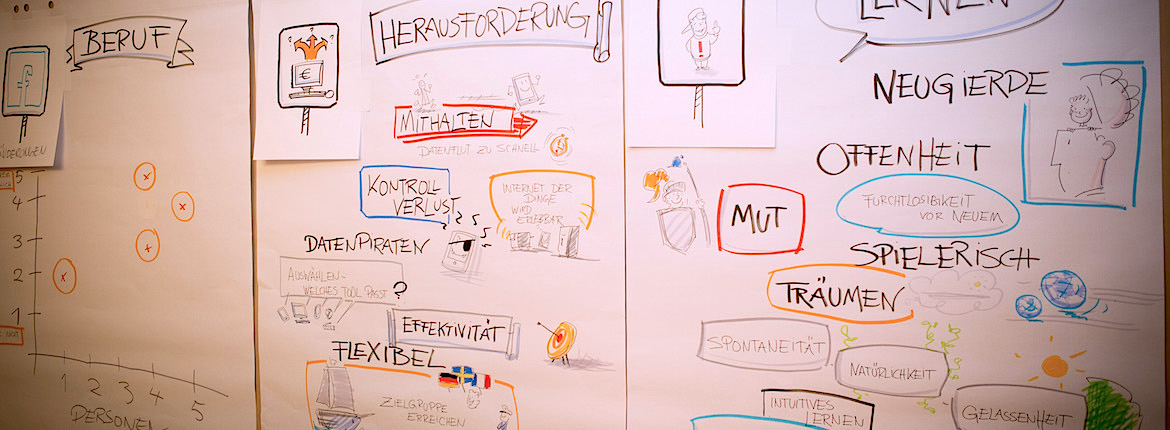 BERUF
5
4
3
2
1
1 2 3 4 5
PERSONEN
€
HERAUSFORDERUNG
MITHALTEN
DATENFLUT ZU SCHNELL
KONTROLL
VERLUST
INTERNET DER
DINGE
WIRD
ERLEBBAR
DATENPIRATEN
AUSWÄHLEN-
WELCHES TOOL PASST?
EFFEKTIVITÄT
FLEXIBEL
ZIELGRUPPE
ERREICHEN
!
LERNEN
NEUGIERDE
OFFENHEIT
FURCHTLOSIGKEIT
VOR NEUEM
MUT
SPIELERISCH
TRÄUMEN
SPONTANEITÄT
NATÜRLICHKEIT
INTUITIVES
LERNEN
GELASSENHEIT